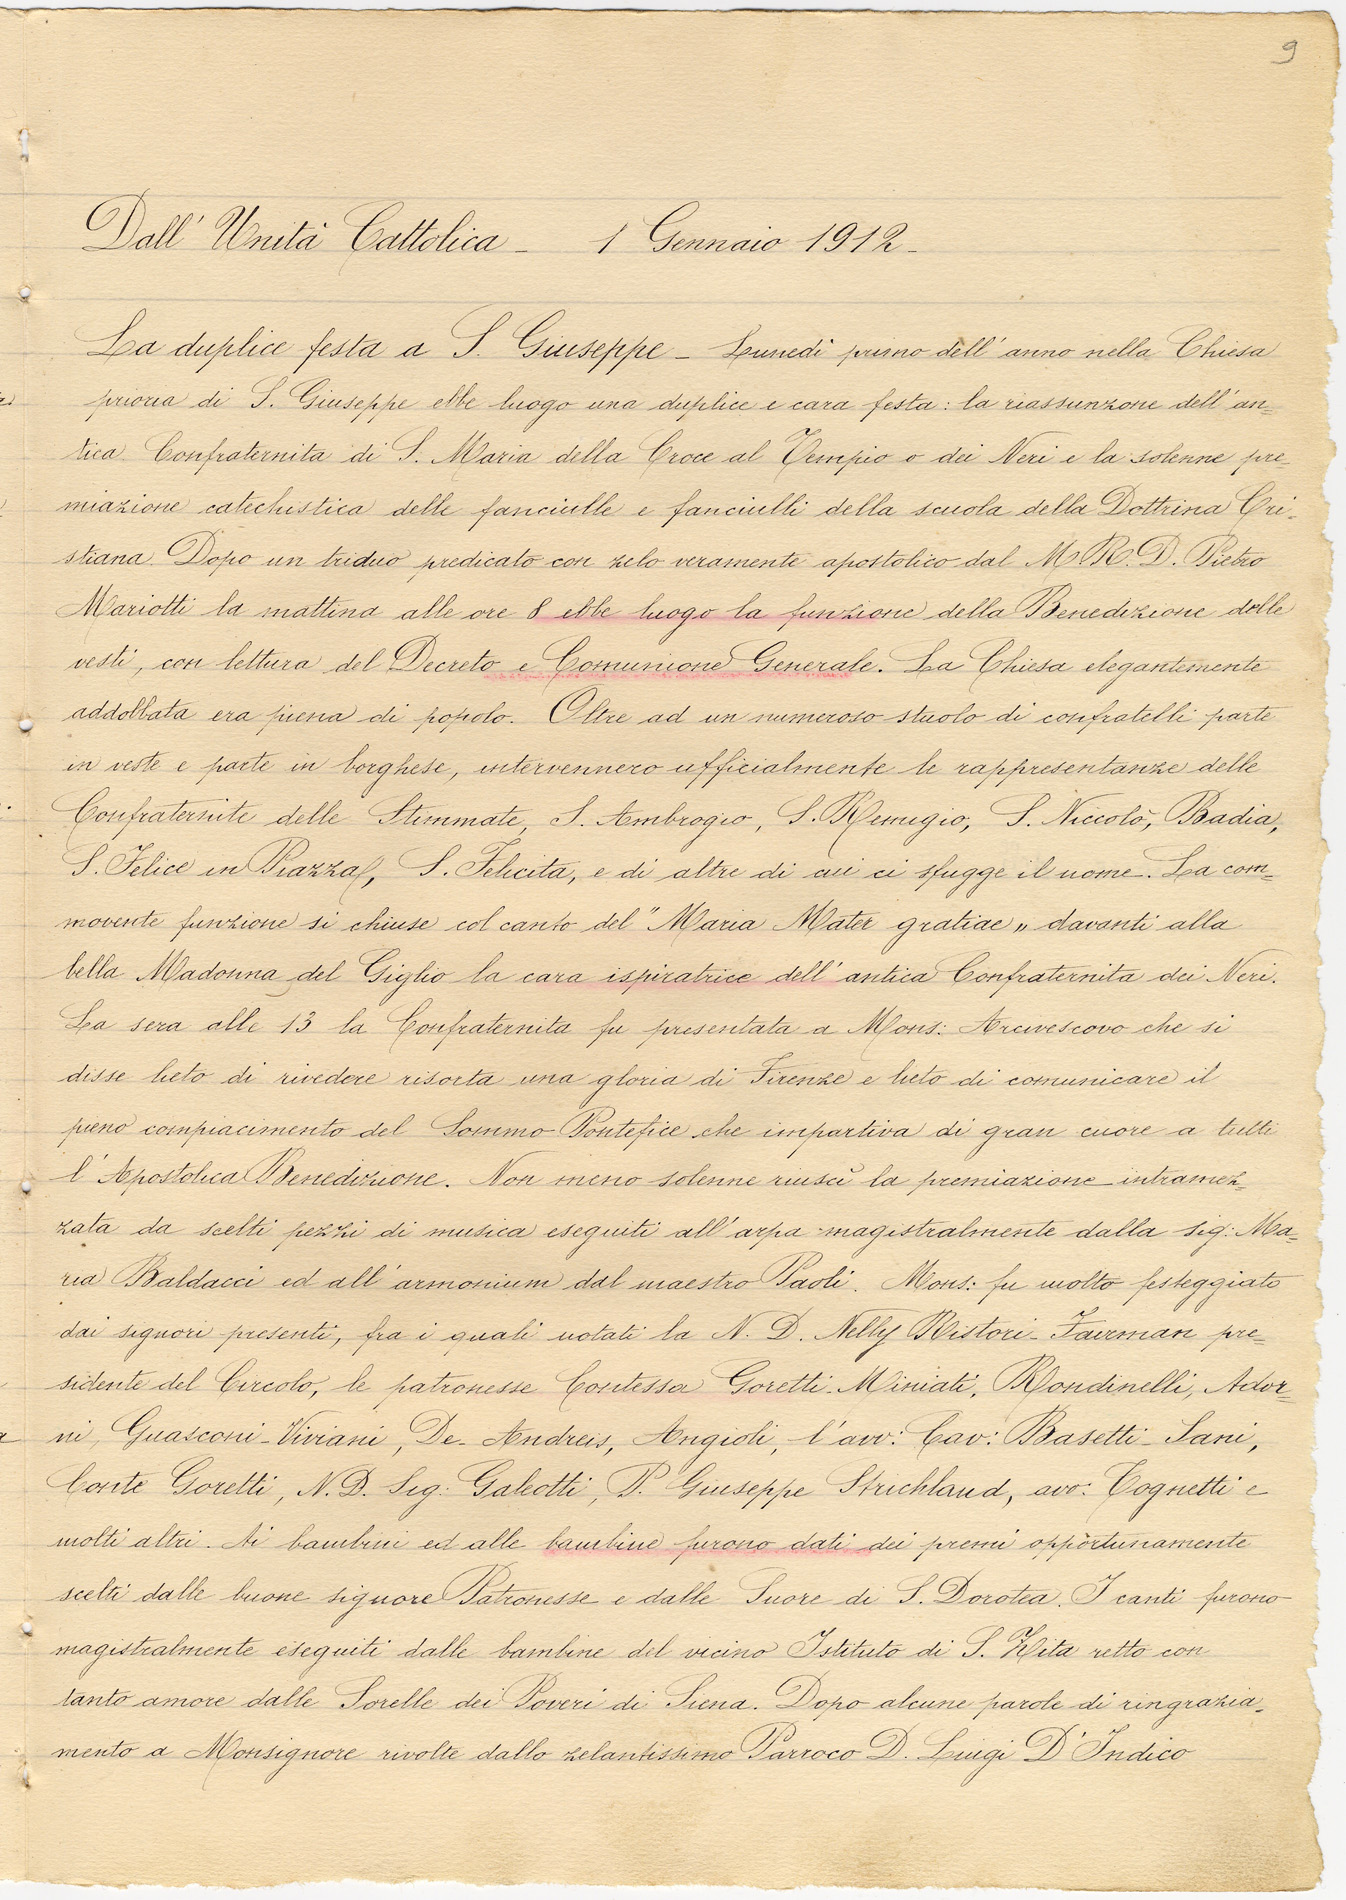 9
Dall' Unità Cattolica - 1 Gennaio 1912 -
La duplice festa a S. Giuseppe - Lunedì primo dell' anno nella Chiesa
prioria di S. Giuseppe ebbe luogo una duplice e cara festa: la riassunzone dell' an=
tica Confraternita di S. Maria della Croce al Tempio o dei Neri e la solenne pre=
miazione catechistica delle fanciulle e fanciulli della scuola della Dottrina Cri=
stiana. Dopo un triduo predicato con zelo veramente apostolico dal M. R. D. Pietro
Mariotti la mattina alle ore 8 ebbe luogo la funzione della Benedizione delle
vesti, con lettura del Decreto e Comunione Generale. La Chiesa elegantemente
addobbata era piena di popolo. Oltre ad un numeroso stuolo di confratelli parte
in veste e parte in borghese, intervennero ufficialmente le rappresentanze delle
Confraternite delle Stimmate, S. Ambrogio, S. Remigio, S. Niccolò, Badia,
S. Felice in Piazza, S. Felicita, e di altre di cui ci sfugge il nome. La com=
movente funzione si chiuse col canto del "Maria Mater gratiae„ davanti alla
bella Madonna del Giglio la cara ispiratrice dell' antica Confraternita dei Neri.
La sera alle 13 la Confraternita fu presentata a Mons: Arcivescovo che si
disse lieto di rivedere risorta una gloria di Firenze e lieto di comunicare il
pieno compiacimento del Sommo Pontefice che impartiva di gran cuore a tutti
l' Apostolica Benedizione. Non meno solenne riuscì la premiazione intramez=
zata da scelti pezzi di musica eseguiti all' arpa magistralmente dalla sig: Ma=
ria Baldacci ed all' armonium dal maestro Paoli. Mons: fu molto festeggiato
dai signori presenti, fra i quali notati la N. D. Nelly Ristori-Fairman pre=
sidente del Circolo, le patronesse Contessa Goretti Miniati, Rondinelli, Ador=
ni, Guasconi-Viviani, De-Andreis, Angioli, l' avv: Cav: Basetti-Sani,
Conte Goretti, N. D. Sig: Galeotti, P. Giuseppe Strichland, avv: Tognetti e
molti altri. Ai bambini ed alle bambine furono dati dei premi opportunamente
scelti dalle buone signore Patronesse e dalle Suore di S. Dorotea. I canti furono
magistralmente eseguiti dalle bambine del vicino Istituto di S. Zita retto con
tanto amore dalle Sorelle dei Poveri di Siena. Dopo alcune parole di ringrazia=
mento a Monsignore rivolte dallo zelantissimo Parroco D. Luigi D' Indico